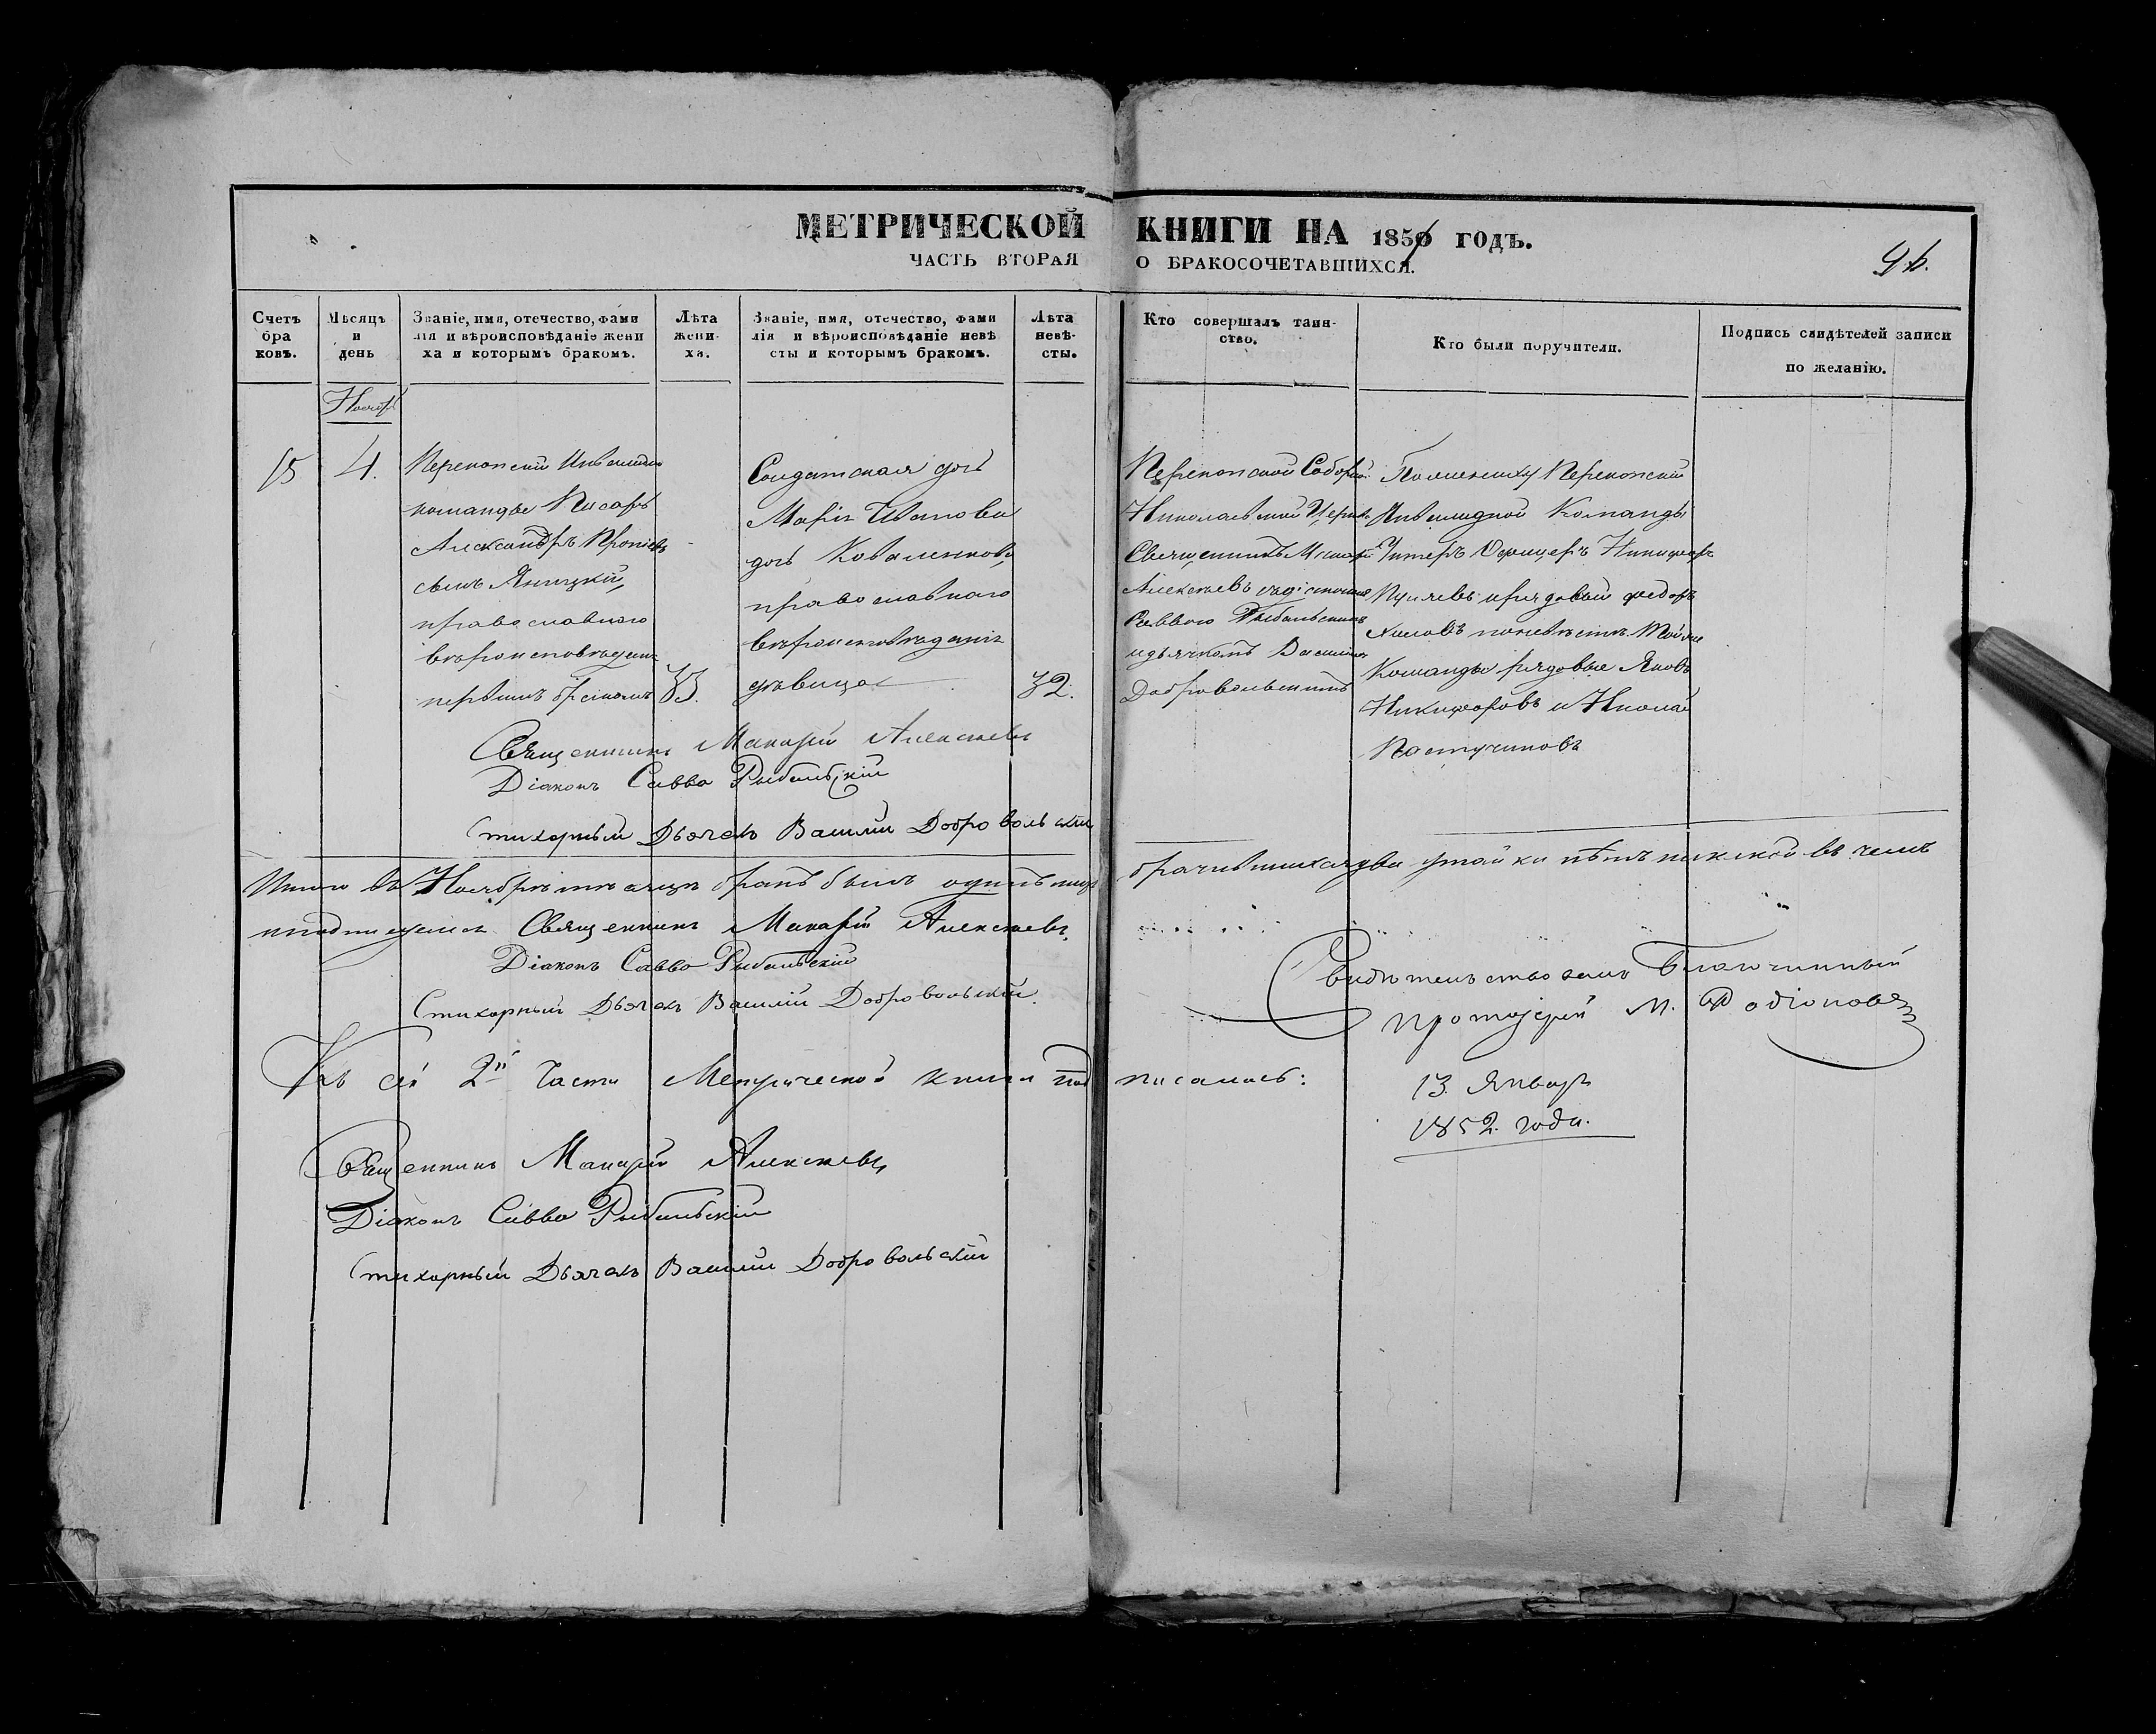 МЕТРИЧЕСКОЙ КНИГИ НА 1851 ГОДЪ.
ЧАСТЬ ВТОРАЯ О БРАКОСОЧЕТАВШИХСЯ.
Счетъ
бра
ковъ.
Мѣсяцъ
и
день
Званіе, имя, отечество, фами
лія и вѣроисповѣданіе жени
ха и которымъ бракомъ.
Лѣта
жени-
ха.
Званіе, имя, отечество, фами
лія и вѣроисповѣданіе невѣ
сты и которымъ бракомъ.
Лѣта
невѣ-
сты.
Кто совершалъ таин-
ство.
Кто были поручители.
Подпись свидѣтелей записи
по желанію.
Ноябр
15
4.
Перекопскій Инвалидн
команды Писарь
Александръ
сынъ Яницкій,
православного
вѣроисповѣданія
первымъ бракомъ
33.
Солдатская дочь
Марія Иванова
дочь Коваленкова,
православного
вѣроисповѣданія
дѣвица
32.
Перекопской Соборной
Николаевской Церкви
Священникъ Макарій
Алексѣевъ съ діакономъ
Саввою Рыбальскимъ
и дьячкомъ Василіемъ
Добровольскимъ
По жениху Перекопской
Инвалидной Команды
Унтеръ Офицеръ Никифоръ
и рядовый Федоръ
по невѣстѣ той же
Команды рядовые Яковъ
Никифоровъ и Николай
Пастуховъ
Священникъ Макарій Алексѣевъ
Діаконъ Савва Рыбальскій
Стихарный Дьячекъ Василій Добровольскій
Итого въ Ноябрѣ мѣсяцѣ бракъ былъ одинъ лицъ брачившихся два утайки нѣтъ никакой въ чемъ
и подписуемся Священникъ Макарій Алексѣевъ,
Діаконъ Савва Рыбальскій
Стихарный Дьячекъ Василій Добровольскій.
Свидѣтельствовалъ Благочинный
Протоіерей М. Родіоновъ
13. Январь
1852. года.
Къ сей 2й Части Метрической книги подписались:
Священникъ Макарій Алексѣевъ
Діаконъ Савва Рыбальскій
Стихарный Дьячекъ Василій Добровольскій